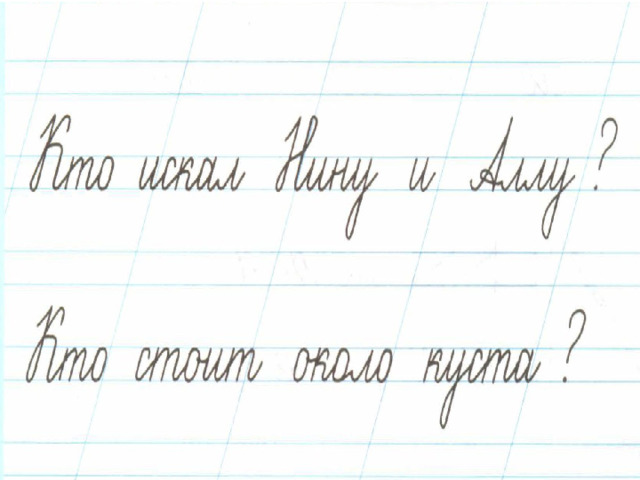 Кто искал Нину и Аллу?
Кто стоит около куста?